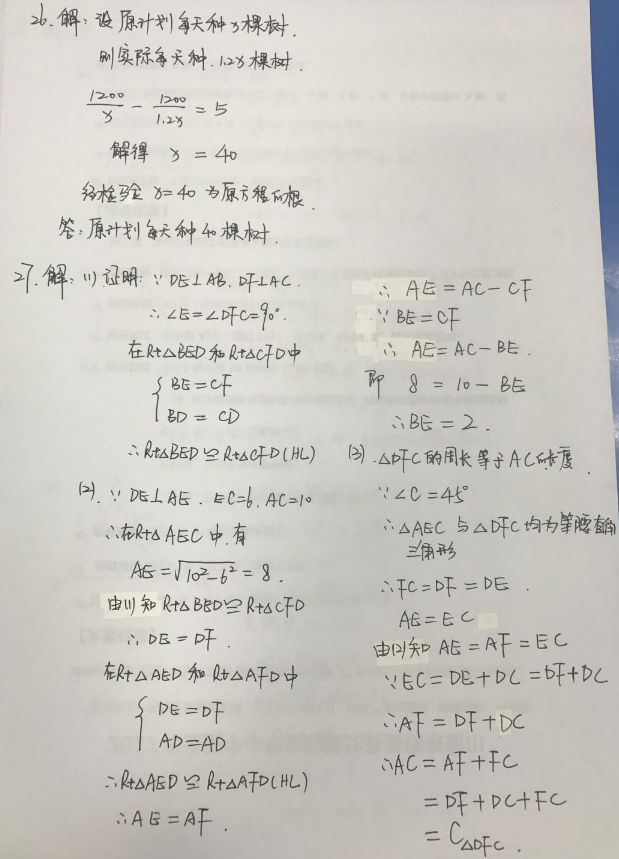 26.解:设原计划每天种x棵树.
则实际每天种.1.2x棵树.
1200/x - 1200/1.2x = 5
解得 x = 40
经检验x=40为原方程的根.
答:原计划每天种40棵树.
27.解:(1)证明:∵DE⊥AB.DF⊥AC.
∴∠E=∠DFC=90°.
在Rt△BED和Rt△CFD中
{ BE=CF
BD=CD
∴Rt△BED≌Rt△CFD(HL)
(2).∵DE⊥AE.EC=6.AC=10
∴在Rt△AEC中.有
AE=√10²-6²=8.
由(1)知Rt△BED≌Rt△CFD
∴DE=DF.
在Rt△AED和Rt△AFD中
{ DE=DF
AD=AD
∴Rt△AED≌Rt△AFD(HL)
∴AE=AF.
∴AE=AC-CF
∵BE=CF
∴AE=AC-BE.
即 8=10-BE
∴BE=2.
(3).△DFC的周长等于AC的长度.
∵∠C=45°
∴△AEC与△DFC均为等腰直角
三角形
∴FC=DF=DE.
AE=EC
由(2)知AE=AF=EC
∵EC=DE+DC=DF+DC
∴AF=DF+DC
∴AC=AF+FC
=DF+DC+FC
=C△DFC.